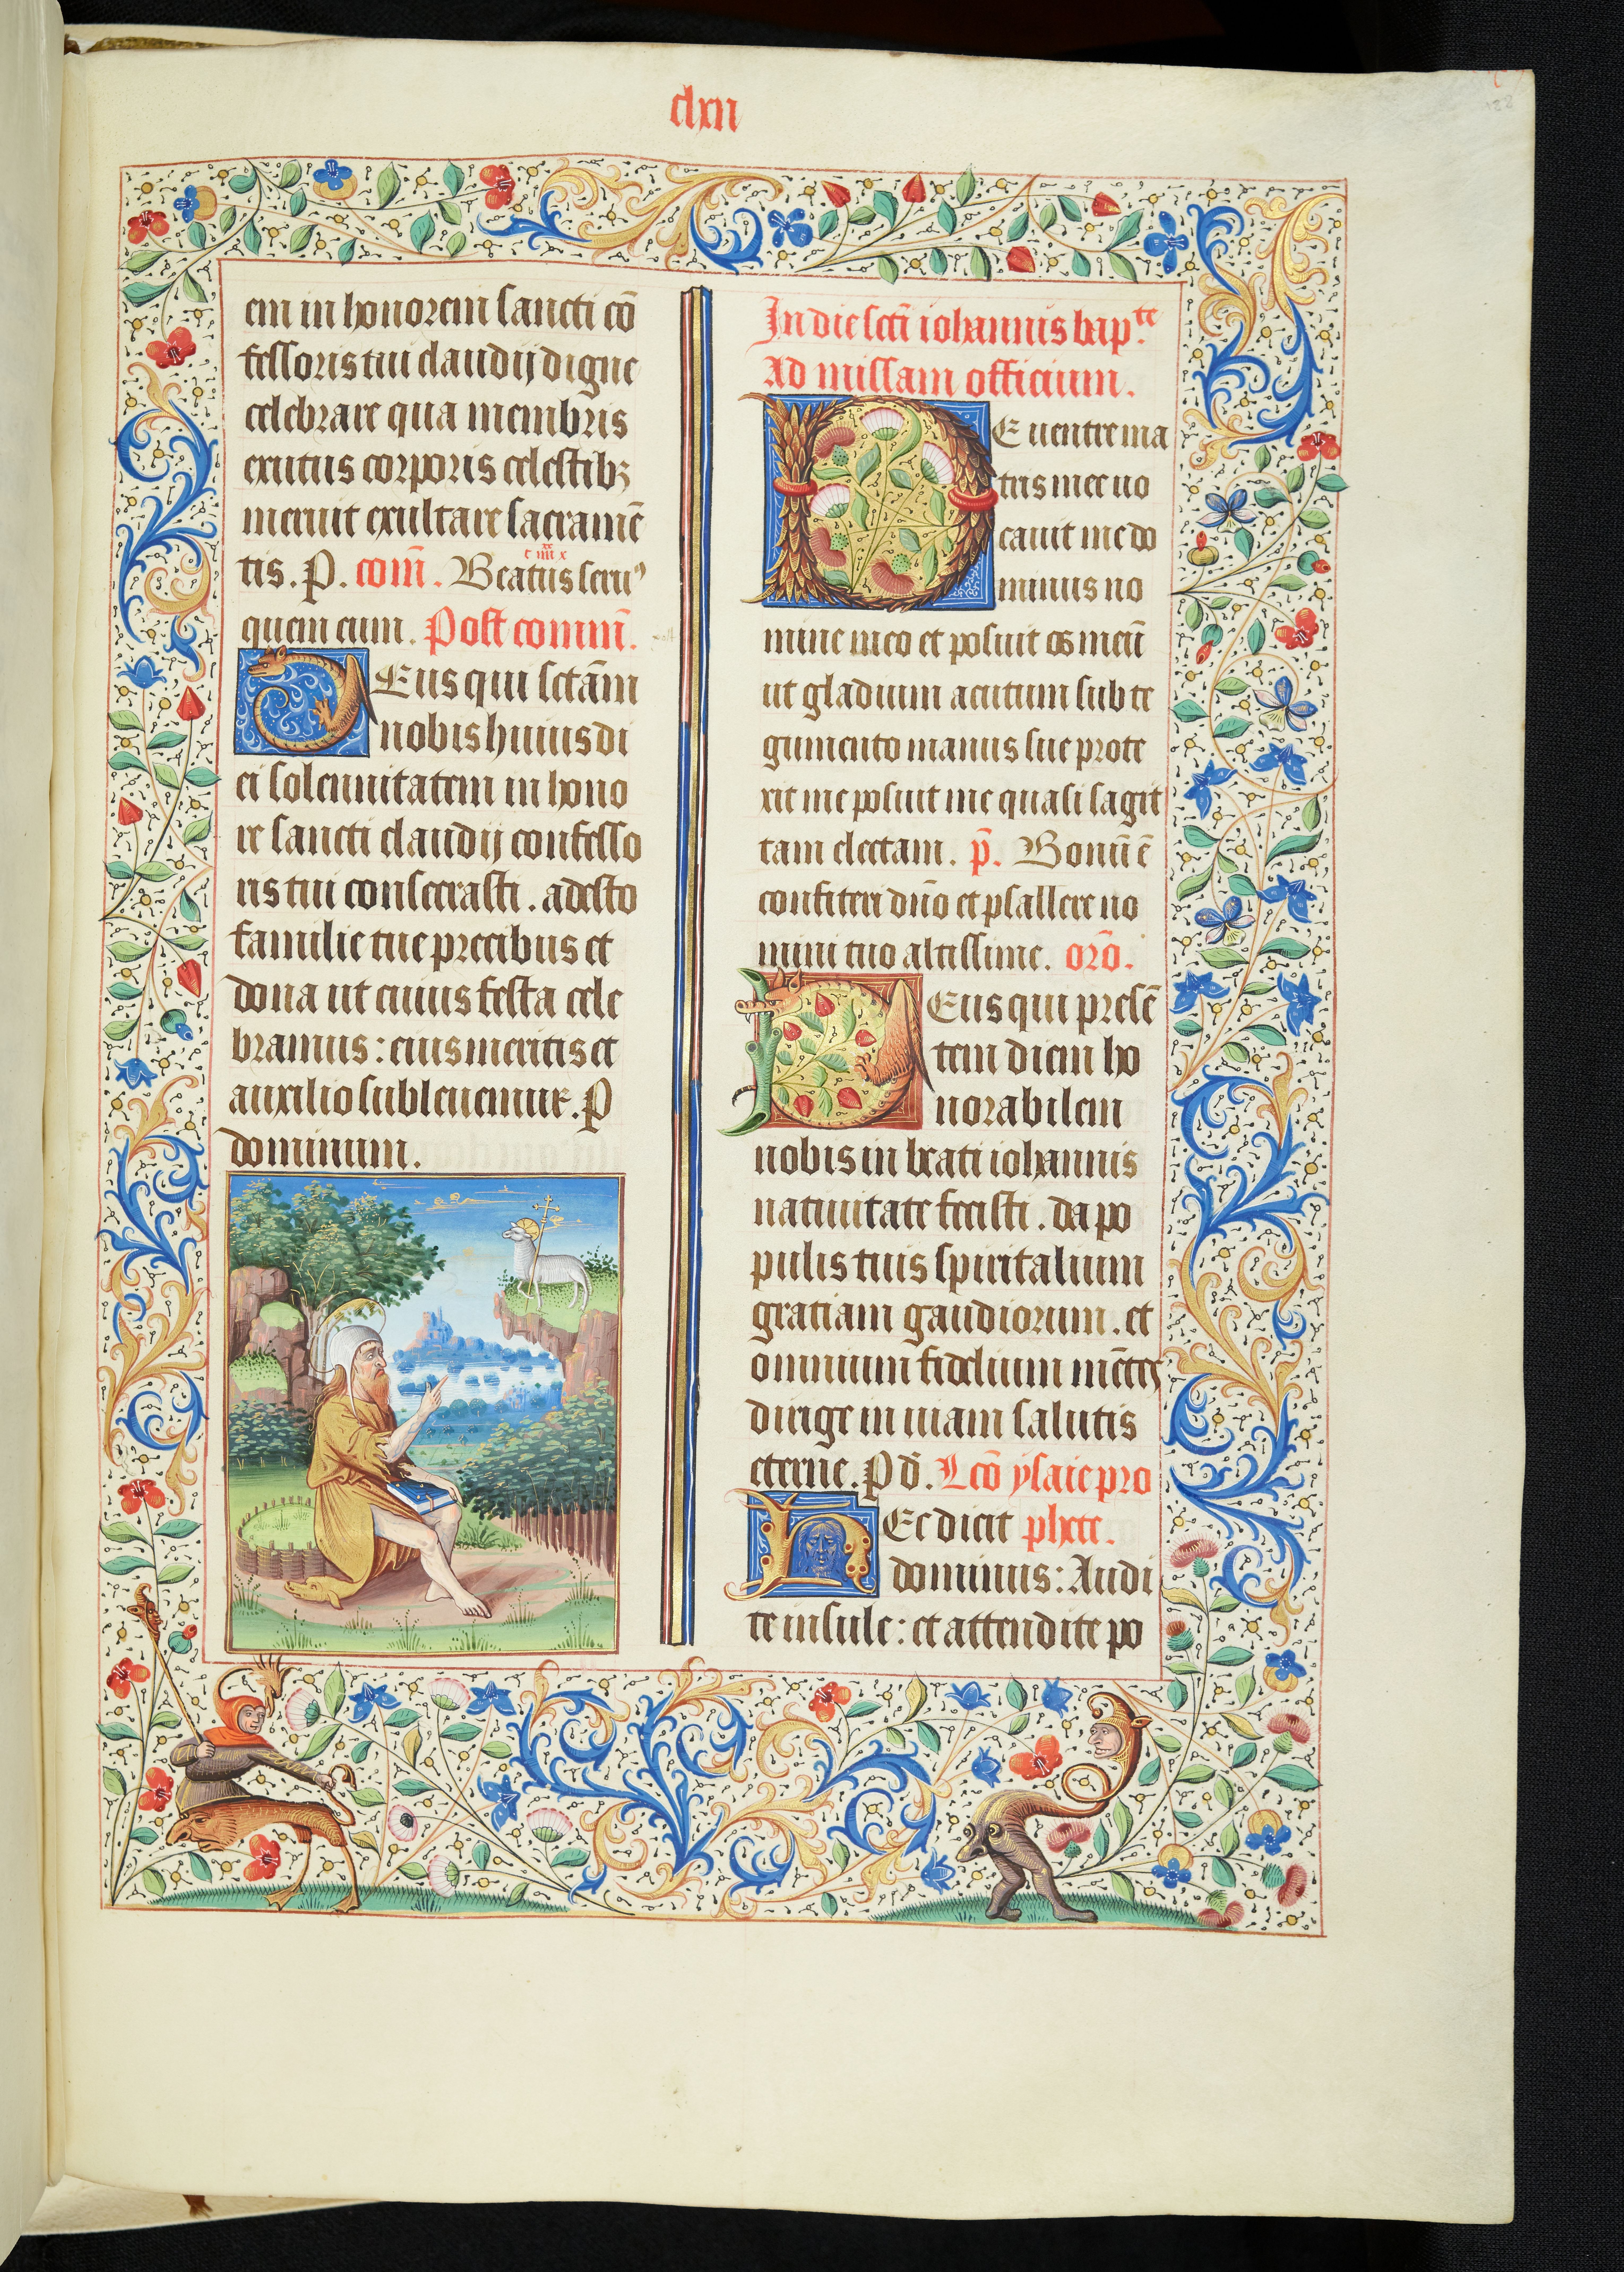 clxii
em in honorem sancti cō
fessoris tui claudij digne
celebrare qua membris
exutus corporis celestibꝫ
meruit exultare sacramē
tis. P. com̄. Beatus seruꝰ
quem cum. Post comm̄.
Deus qui sctām
nobis huius di
ei solennitatem in hono
re sancti claudij confesso
ris tui consecrasti. adesto
familie tue precibus et
dona ut cuius festa cele
bramus: eius meritis et
auxilio subleuemur. P
dominum.
In die scti iohannis bapte
Ad missam officium.
De uentre ma
tris mee uo
cauit me do
minus no
mine meo et posuit os meū
ut gladium acutum sub te
gumento manus sue prote
xit me posuit me quasi sagit
tam electam. p̄. Bonū ē
confiteri dn̄o et psallere no
mini tuo altissime. orō.
Deus qui presē
tem diem ho
norabilem
nobis in beati iohannis
natiuitate fecisti. da po
pulis tuis spiritalium
gratiam gaudiorum. et
omnium fidelium mētes
dirige in uiam salutis
eterne. P d̄. Lcō ysaie pro
Hec dicit phete.
dominus: Audi
te insule: et attendite po